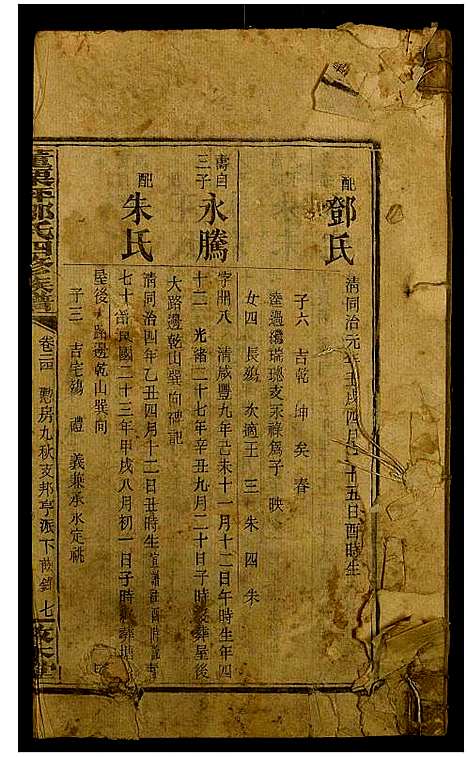 配
鄧氏
清同治元年壬戌四月二十五日酉時生
子六 吉 乾 坤 矣 春
達過繼瑞璁支永祿爲子 映
女四 長殤 次適王 三朱 四朱
壽白
三子
永騰
字開八 清咸豐九年己未十一月十二日午時生年四
十三 光緒二十七年辛丑九月二十日子時歿葬屋後
大路邊乾山巽向碑記
配
朱氏
清同治四年乙丑四月十二日丑時生
七十 民國二十三年甲戌八月初一日子時歿葬塘
屋後 路邊乾山巽向
子三 吉宅殤 禮 義兼承永定祧
氏四修族譜
卷二四 房九秋支邦亨派下 七